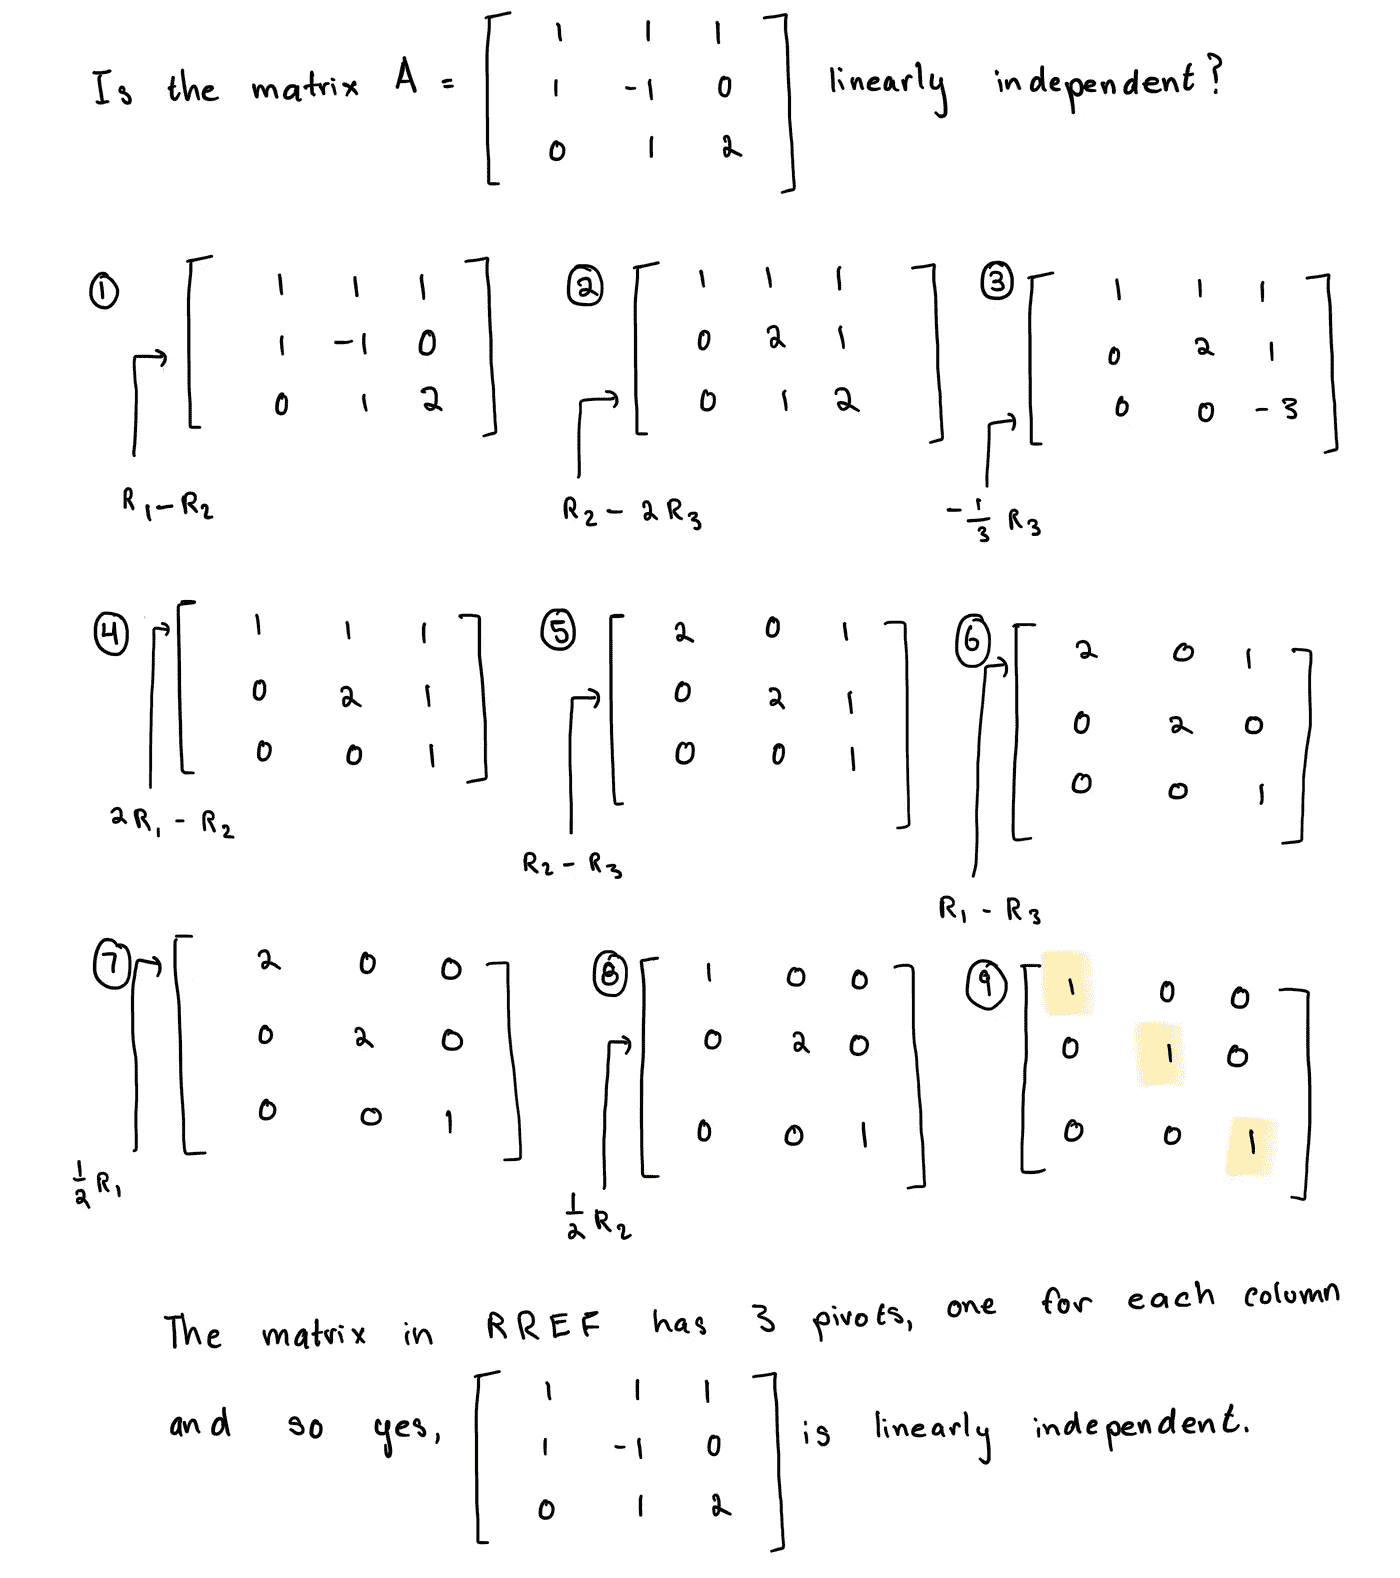 Is the matrix A = [ 1 1 1 linearly independent?
1 -1 0
0 1 2 ]
① [ 1 1 1
1 -1 0
0 1 2 ]
R₁-R₂
② [ 1 1 1
0 2 1
0 1 2 ]
R₂ - 2R₃
③ [ 1 1 1
0 2 1
0 0 -3 ]
-1/3 R₃
④ [ 1 1 1
0 2 1
0 0 1 ]
2R₁ - R₂
⑤ [ 2 0 1
0 2 1
0 0 1 ]
R₂ - R₃
⑥ [ 2 0 1
0 2 0
0 0 1 ]
R₁ - R₃
⑦ [ 2 0 0
0 2 0
0 0 1 ]
1/2 R₁
⑧ [ 1 0 0
0 2 0
0 0 1 ]
1/2 R₂
⑨ [ 1 0 0
0 1 0
0 0 1 ]
The matrix in RREF has 3 pivots, one for each column
and so yes, [ 1 1 1 is linearly independent.
1 -1 0
0 1 2 ]